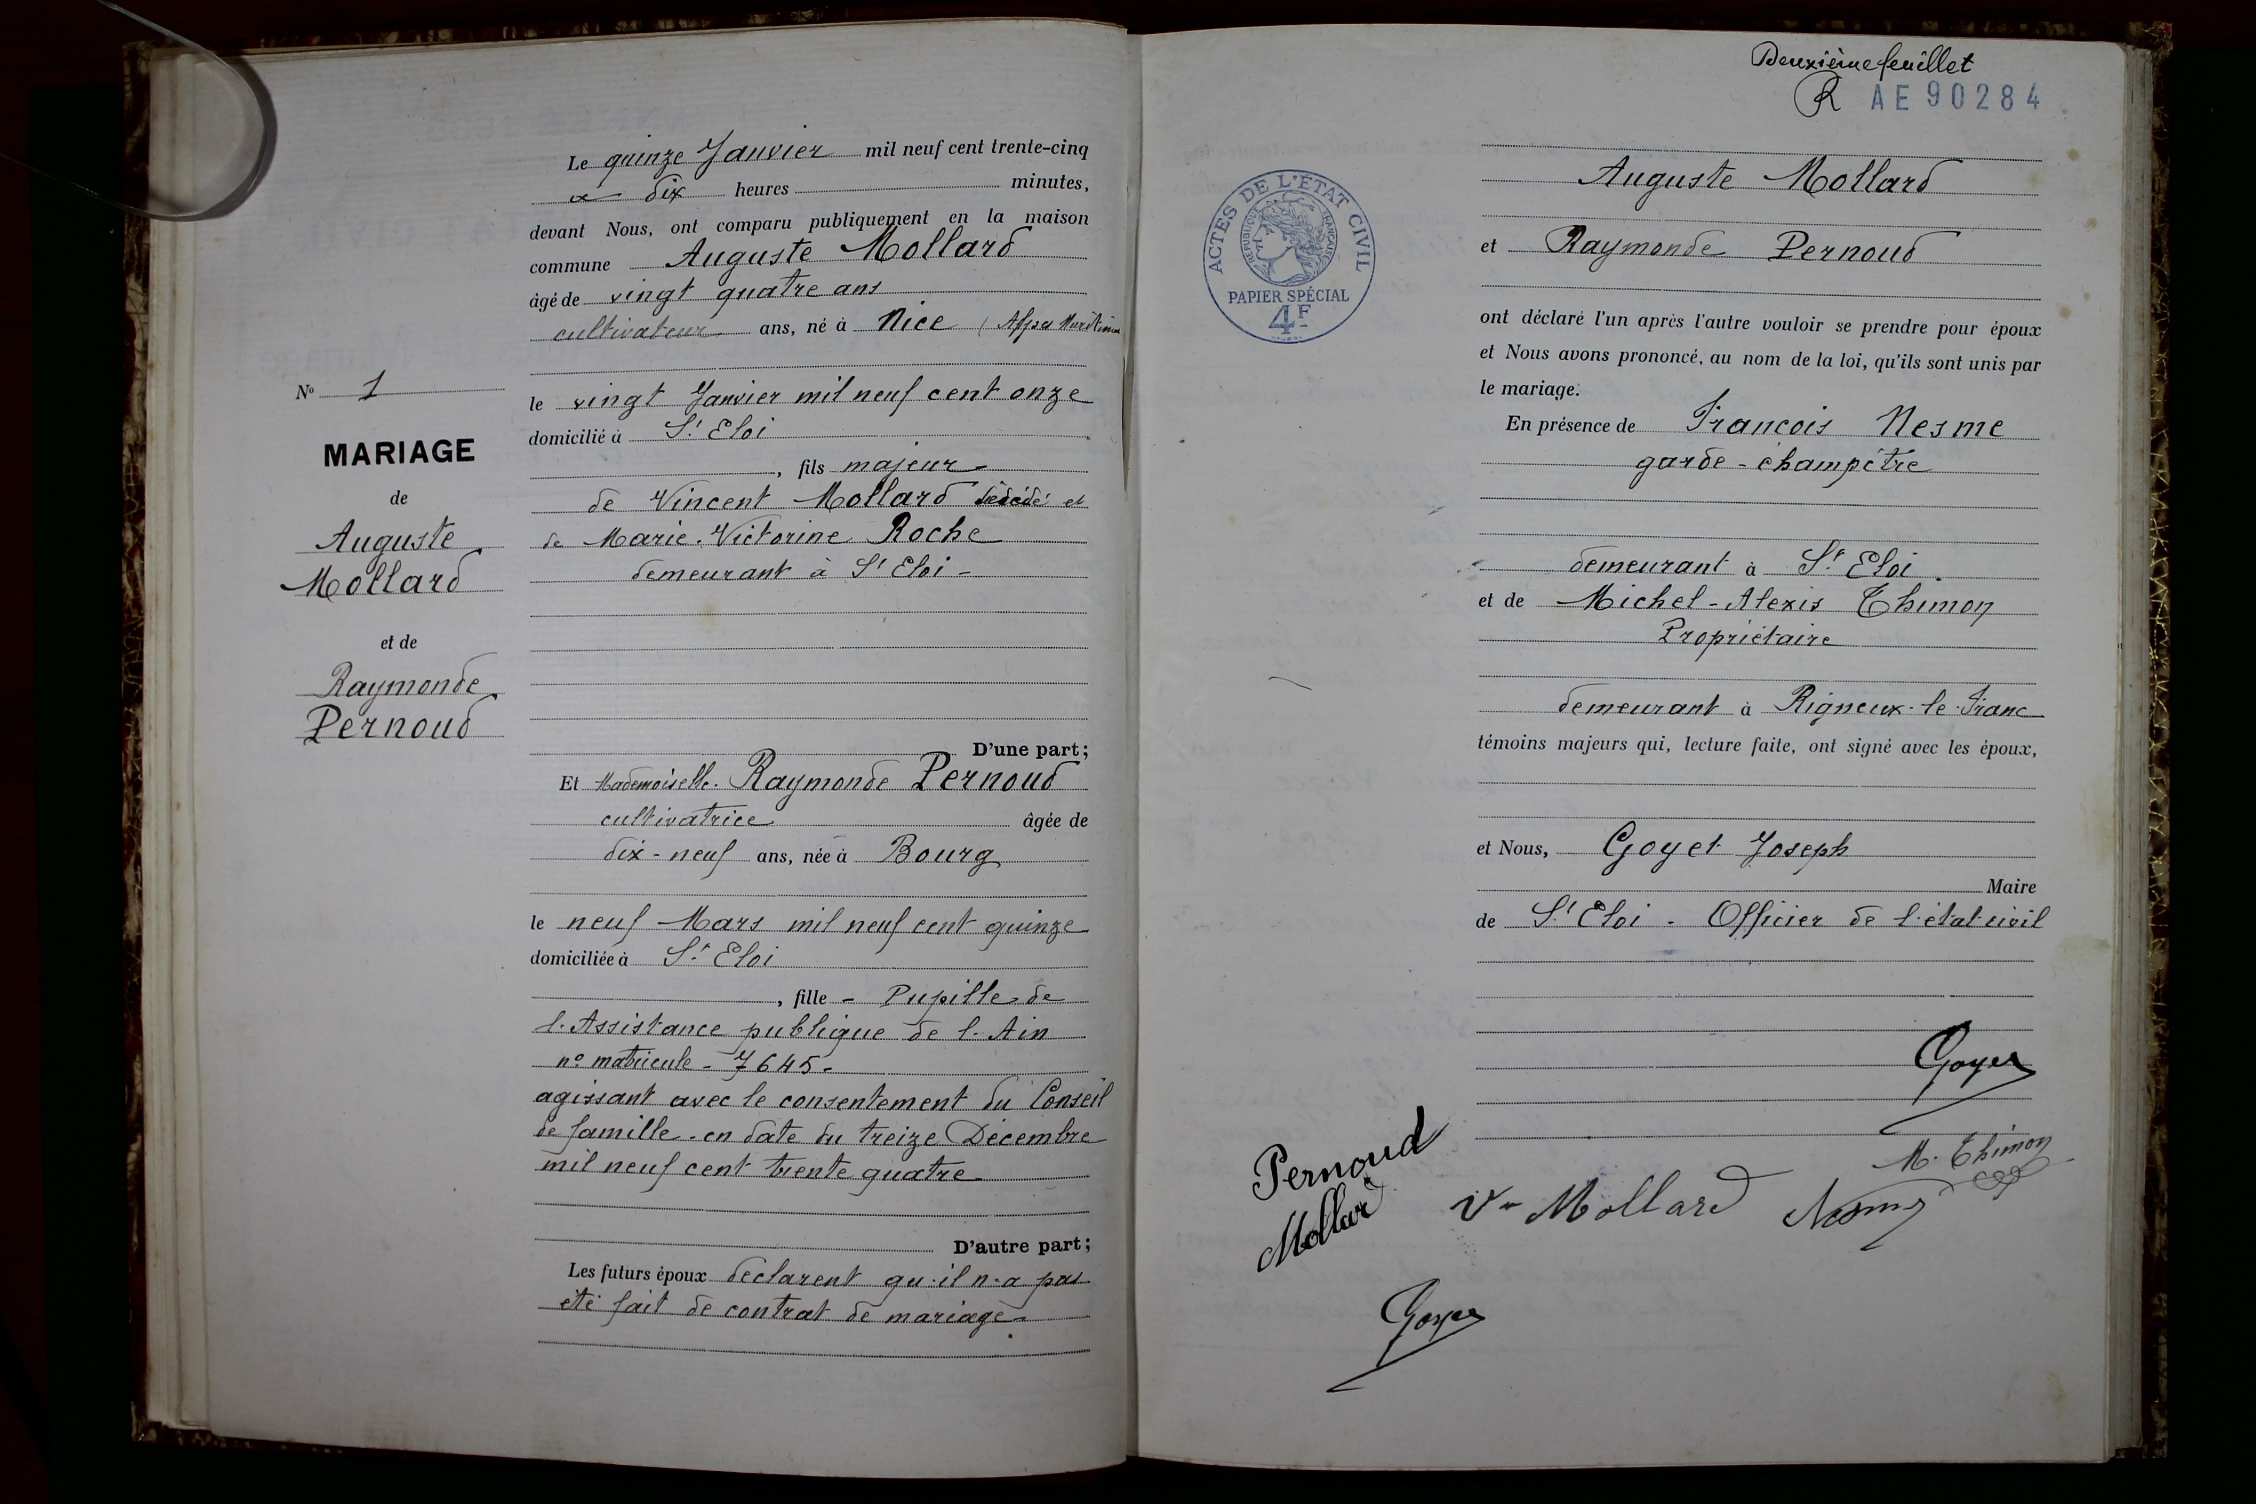 Le quinze Janvier mil neuf cent trente-cinq
à dix heures minutes,
devant Nous, ont comparu publiquement en la maison
commune Auguste Mollard
âgé de vingt quatre ans
cultivateur ans, né à Nice (Alpes Maritimes
le vingt Janvier mil neuf cent onze
domicilié à St Eloi
, fils majeur
de Vincent Mollard décédé et
de Marie-Victorine Roche
demeurant à St Eloi -
D'une part;
Et Mademoiselle. Raymonde Pernoud
cultivatrice âgée de
dix-neuf ans, née à Bourg
le neuf Mars mil neuf cent quinze
domiciliée à St Eloi
, fille - Pupille de
l'Assistance publique de l'Ain
n° matricule - 7645 -
agissant avec le consentement du Conseil
de famille - en date du treize Décembre
mil neuf cent trente quatre
D'autre part;
Les futurs époux déclarent qu'il n'a pas
été fait de contrat de mariage -
N° 1
MARIAGE
de
Auguste
Mollard
et de
Raymonde
Pernoud
Deuxième feuillet
R AE 90284
ACTES DE L'ÉTAT CIVIL
RÉPUBLIQUE FRANÇAISE
PAPIER SPÉCIAL
4F
Auguste Mollard
et Raymonde Pernoud
ont déclaré l'un après l'autre vouloir se prendre pour époux
et Nous avons prononcé, au nom de la loi, qu'ils sont unis par
le mariage.
En présence de François Nesme
garde-champêtre
demeurant à St Eloi.
et de Michel-Alexis Thimon
Propriétaire
demeurant à Rigneux-le-Franc
témoins majeurs qui, lecture faite, ont signé avec les époux,
et Nous, Goyet Joseph
Maire
de St Eloi - Officier de l'état-civil
Goyet
Pernoud
Mollard
Ve Mollard
Nesme
M. Thimon
Goyet